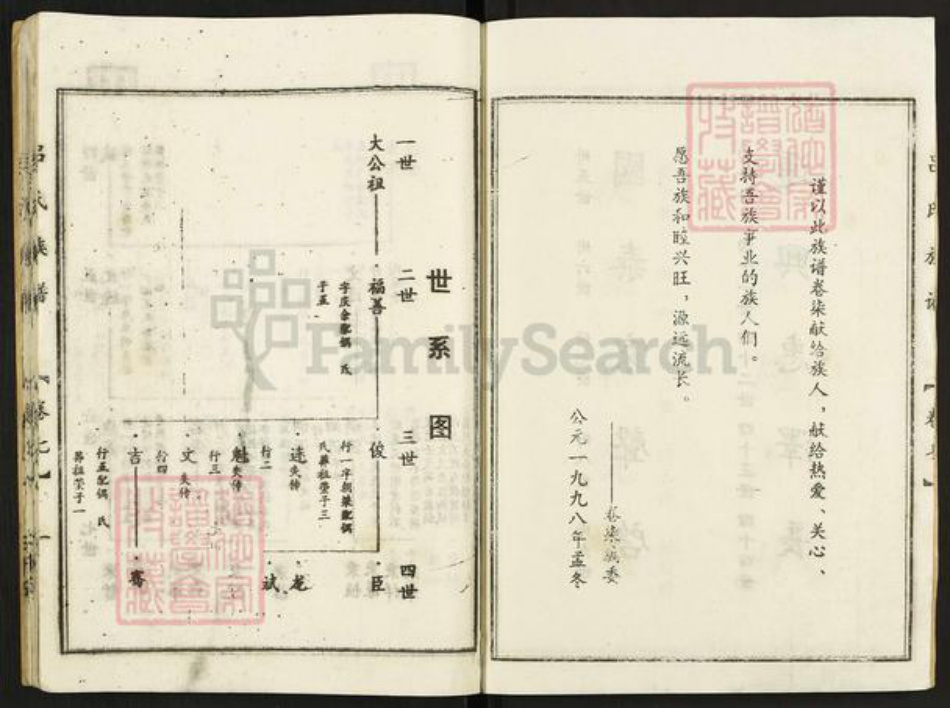 谨以此族谱卷柒献给族人，献给热爱、关心、
支持吾族事业的族人们。
愿吾族和睦兴旺，源远流长。
卷柒编委
公元一九九八年孟冬
世系图
一世
二世
三世
四世
大公祖
福善
字庆余配偶 氏
子五
俊
行一字朝荣配偶
氏葬祖茔子三
进失传
行二
魁失传
行三
文失传
行四
吉
行五配偶 氏
葬祖茔子一
臣
龙
斌
FamilySearch